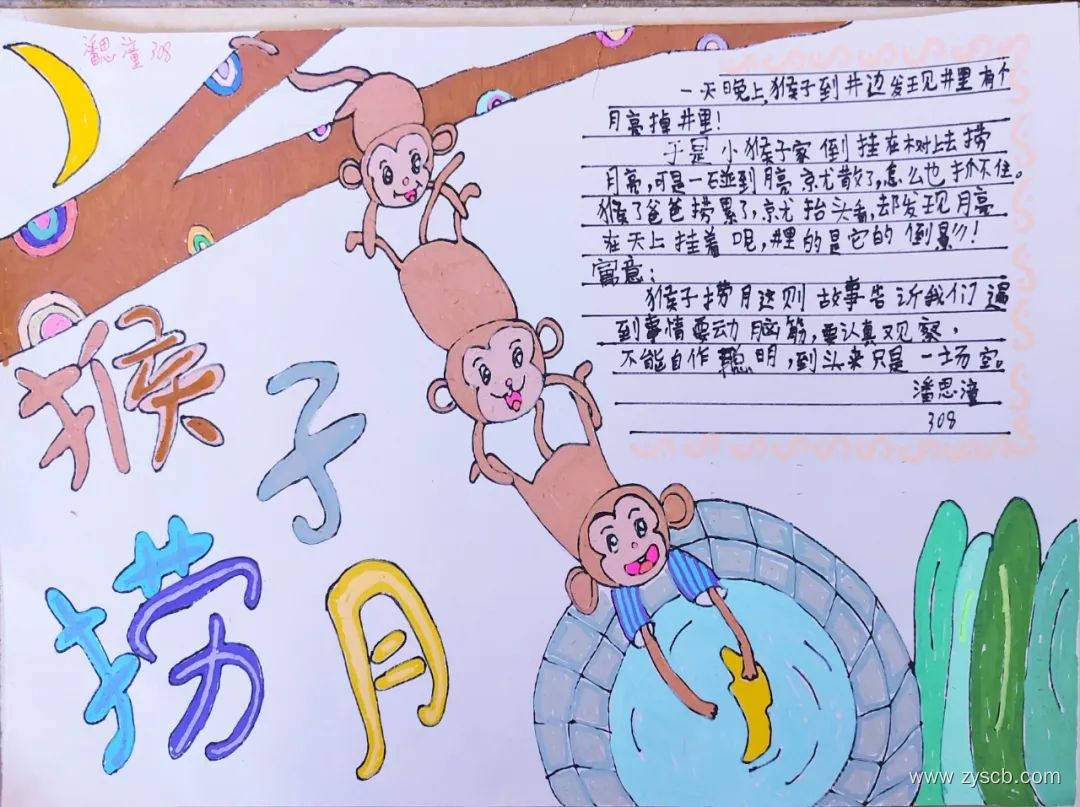 潘思潼 308
猴子
捞月
一天晚上,猴子到井边发现井里有个
月亮掉井里!
于是小猴子家倒挂在树上去捞
月亮,可是一碰到月亮就散了,怎么也抓不住。
猴了爸爸捞累了,就抬头看,却发现月亮
在天上挂着呢,井里的是它的倒影!
寓意:
猴子捞月这则故事告诉我们遇
到事情要动脑筋,要认真观察,
不能自作聪明,到头来只是一场空。
潘思潼
308
www.zyscb.com